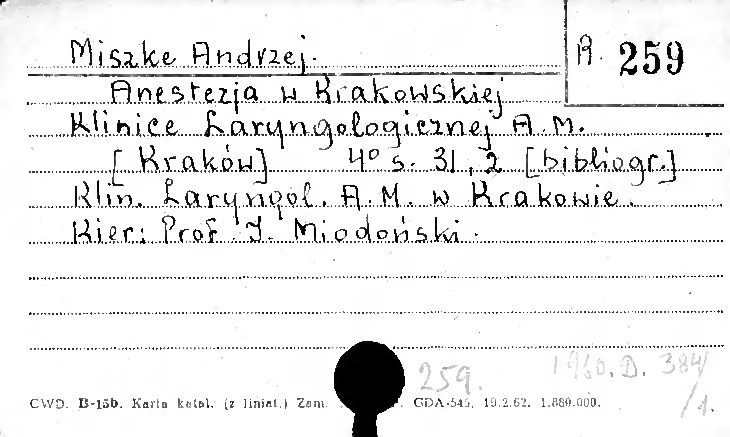 Miszke Andrzej. R 259
Anestezja w Krakowskiej
Klinice Laryngologicznej A.M.
[Kraków] 4° s. 31, 2 [bibliogr.]
Klin. Laryngol. A.M. w Krakowie.
Kier: Prof. J. Miodoński.
259. 1960.D. 384/
/1.
CWD. B-15b. Karta katal. (z liniat.) Zam. GDA-545. 19.2.62. 1.880.000.